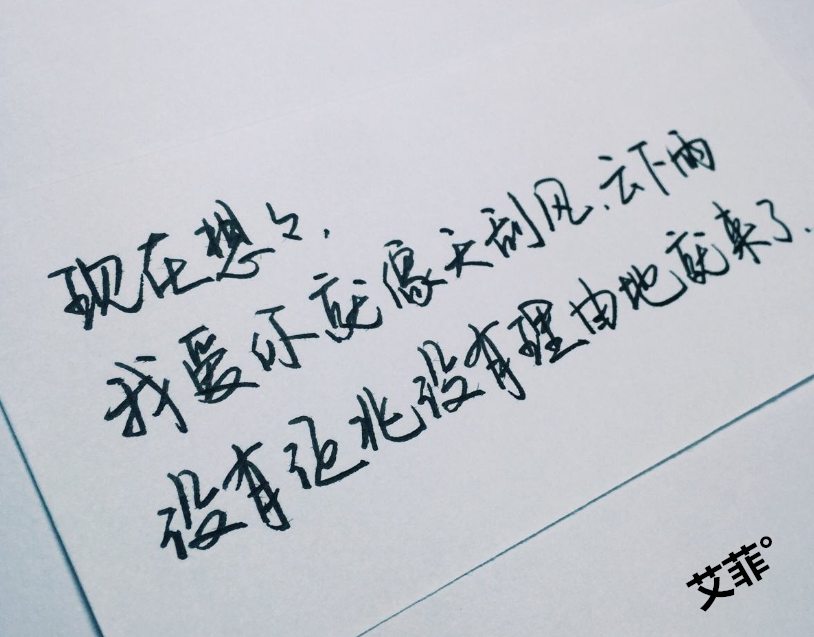 现在想々,
我爱你就像天刮风,云下雨
没有征兆没有理由地就来了.
艾菲°